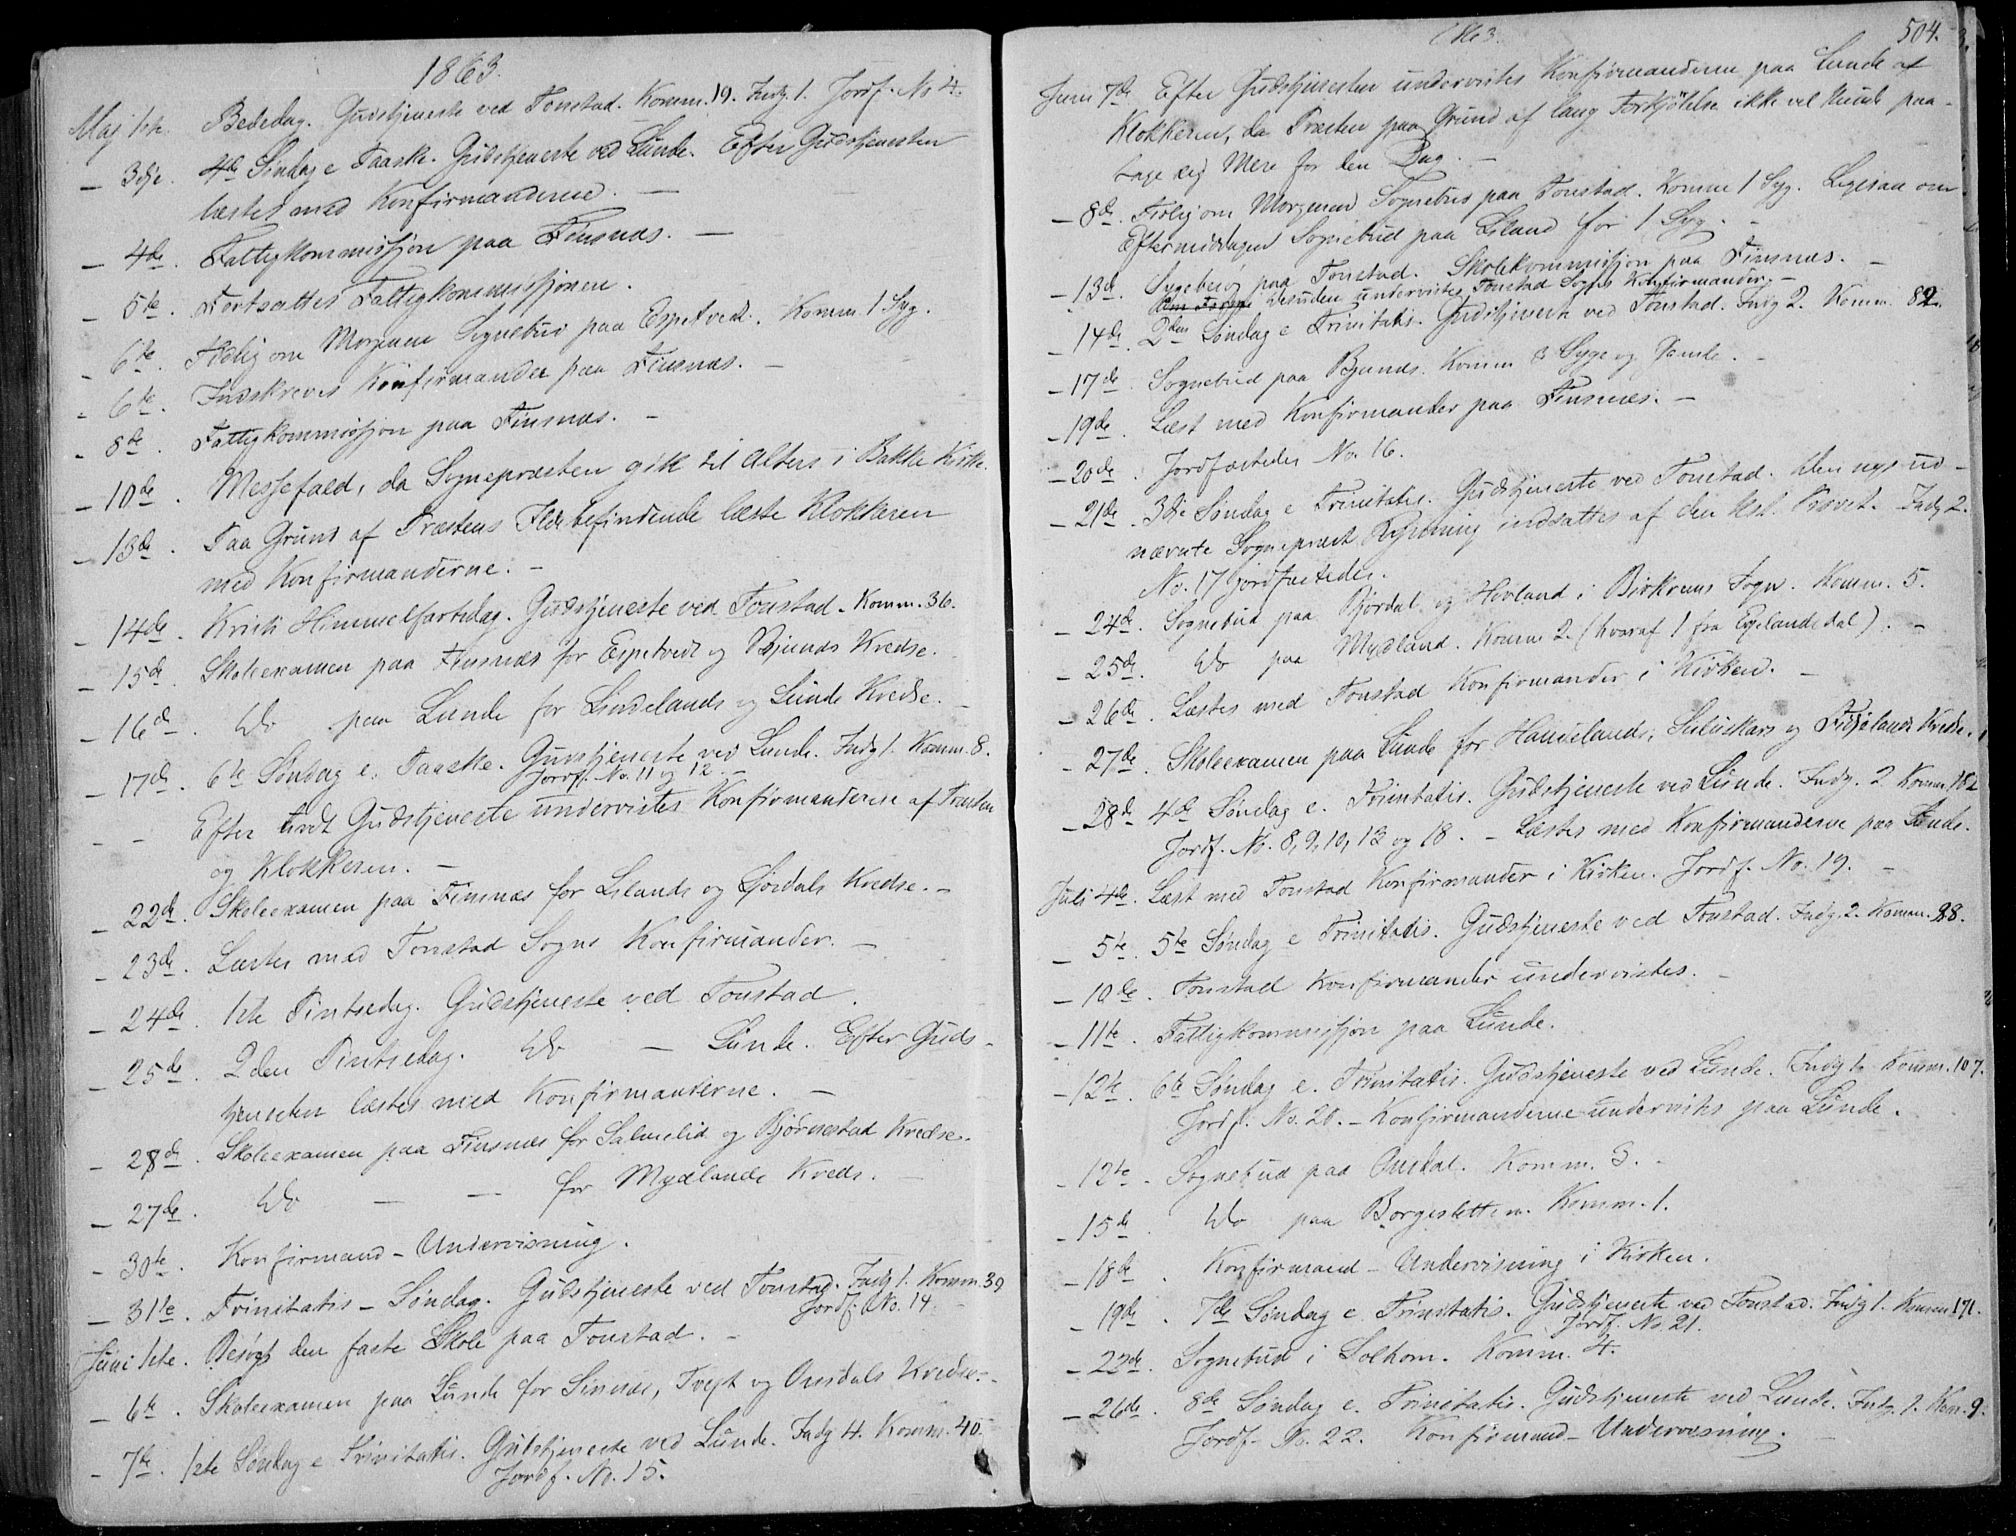 1863.
Maj 1ste. Bededag. Gudstjeneste ved Tonstad. Komm. 19. Indg. 1. Jordf. No 4.
— 3die. 4de Søndag e Paaske. Gudstjeneste ved Lunde. Efter Gudstjenesten
læstes med Konfirmanderne. —
— 4de. Fattigkommissjon paa Finsnæs. —
— 5te. Fortsattes Fattigkommissjonen.
— 6te. Tidlig om Morgenen Sognebud paa Espetved. Komm. 1 Syg.
— 6te. Indskreves Konfirmander paa Finsnæs. —
— 8de. Fattigkommissjon paa Finsnæs. —
— 10de. Messefald, da Sognepræsten gik til Alters i Bakke Kirke.
— 13de. Paa Grund af Præstens Ildebefindende læste Klokkeren
med Konfirmanderne. —
— 14de. Kristi Himmelfartsdag. Gudstjeneste ved Tonstad. Komm. 36.
— 15de. Skoleexamen paa Finsnæs for Espetvedt og Bjunæs Kredse.
— 16de. Do paa Lunde for Lindelands og Lunde Kredse. —
— 17de. 6te Søndag e. Paaske. Gudstjeneste ved Lunde. Indg 1. Komm. 8.
Jordf. No. 11 og 12. —
— — Efter endt Gudstjeneste undervistes Konfirmanderne af Præsten
og Klokkeren. —
— 22de. Skoleexamen paa Finsnæs for Lilands og Gjørdals Kredse. —
— 23de. Læstes med Tonstad Sogns Konfirmander. —
— 24de. 1ste Pintsedag. Gudstjeneste ved Tonstad.
— 25de. 2den Pintsedag. Do — Lunde. Efter Guds-
tjenesten læstes med Konfirmanterne. —
— 28de. Skoleexamen paa Finsnæs for Salmelid og Bjørnestad Kredse.
— 27de. Do — — for Mydlands Kreds. —
— 30te. Konfirmand-Undervisning.
— 31te. Trinitatis-Søndag. Gudstjeneste ved Tonstad. Indg 1. Komm. 39
Jordf. No. 14. —
Juni 1ste. Besøgt den faste Skole paa Tonstad. —
— 6te. Skoleexamen paa Lunde for Sinnæs, Tvejt og Ousdals Kredse. —
— 7de. 1ste Søndag e Trinitatis. Gudstjeneste ved Lunde. Indg 4. Komm. 40.
Jordf. No. 15.
1863. 504.
Juni 7de. Efter Gudstjenesten undervistes Konfirmanderne paa Lunde af
Klokkeren, da Præsten paa Grund af lang Forkjølelse ikke vel kunde paa-
tage sig Mere for den Dag. —
— 8de. Tidlig om Morgenen Sognebud paa Tonstad. Komm 1 Syg. Ligesaa om
Eftermiddagen Sognebud paa Liland for 1 Syg. —
— 13de. Sygebesøg paa Tonstad. Skolekommissjon paa Finsnæs. —
Desuden undervistes Tonstad Sogns Konfirmander. —
— 14de. 2den Søndag e Trinitatis. Gudstjeneste ved Tonstad. Indg 2. Komm. 82.
— 17de. Sognebud paa Bjunæs. Komm 3 Syge og Gamle. —
— 19de. Læst med Konfirmander paa Finsnæs. —
— 20de. Jordfæstedes No. 16.
— 21de. 3die Søndag e Trinitatis. Gudstjeneste ved Tonstad. Den nye ud-
nævnte Sognepræst indsattes af den Kst. Provst. Indg 2.
No. 17 jordfæstedes.
— 24de. Sognebud paa Bjørdal og Hovland i Birkrems Sogn. Komm. 5.
— 25de. Do paa Mydland. Komm 2. (hvoraf 1 fra Egelandsdal). —
— 26de. Læstes med Tonstad Konfirmander i Kirken. —
— 27de. Skoleexamen paa Lunde for Haudelands, Suluskars og Fidjelands Kredse.
— 28de 4de Søndag e. Trinitatis. Gudstjeneste ved Lunde. Indg. 2 Komm. 182
Jordf. No. 8, 9, 10, 13 og 18. — Læstes med Konfirmanderne paa Lunde.
Juli 4de. Læst med Tonstad Konfirmander i Kirken. Jordf. No. 19. —
— 5te. 5te Søndag e Trinitatis. Gudstjeneste ved Tonstad. Indg. 2. Komm. 98.
— 10de. Tonstad Konfirmander undervistes. —
— 11te. Fattigkommissjon paa Lunde.
— 12te. 6te Søndag e. Trinitatis. Gudstjeneste ved Lunde. Indg 1. Komm. 107.
Jordf. No. 20. — Konfirmanderne undervistes paa Lunde.
— 12te. Sognebud paa Ousdal. Komm. 3. —
— 15de. Do paa Borgesletten. Komm. 1.
— 18de. Konfirmand-Undervisning i Kirken.
— 19de. 7de Søndag e Trinitatis. Gudstjeneste ved Tonstad. Indg 1. Komm 171.
Jordf. No. 21.
— 22de. Sognebud i Solhom. Komm. 4.
— 26de. 8de Søndag e. Trinitatis. Gudstjeneste ved Lunde. Indg. 1. Kom. 9.
Jordf. No. 22. Konfirmand-Undervisning. —